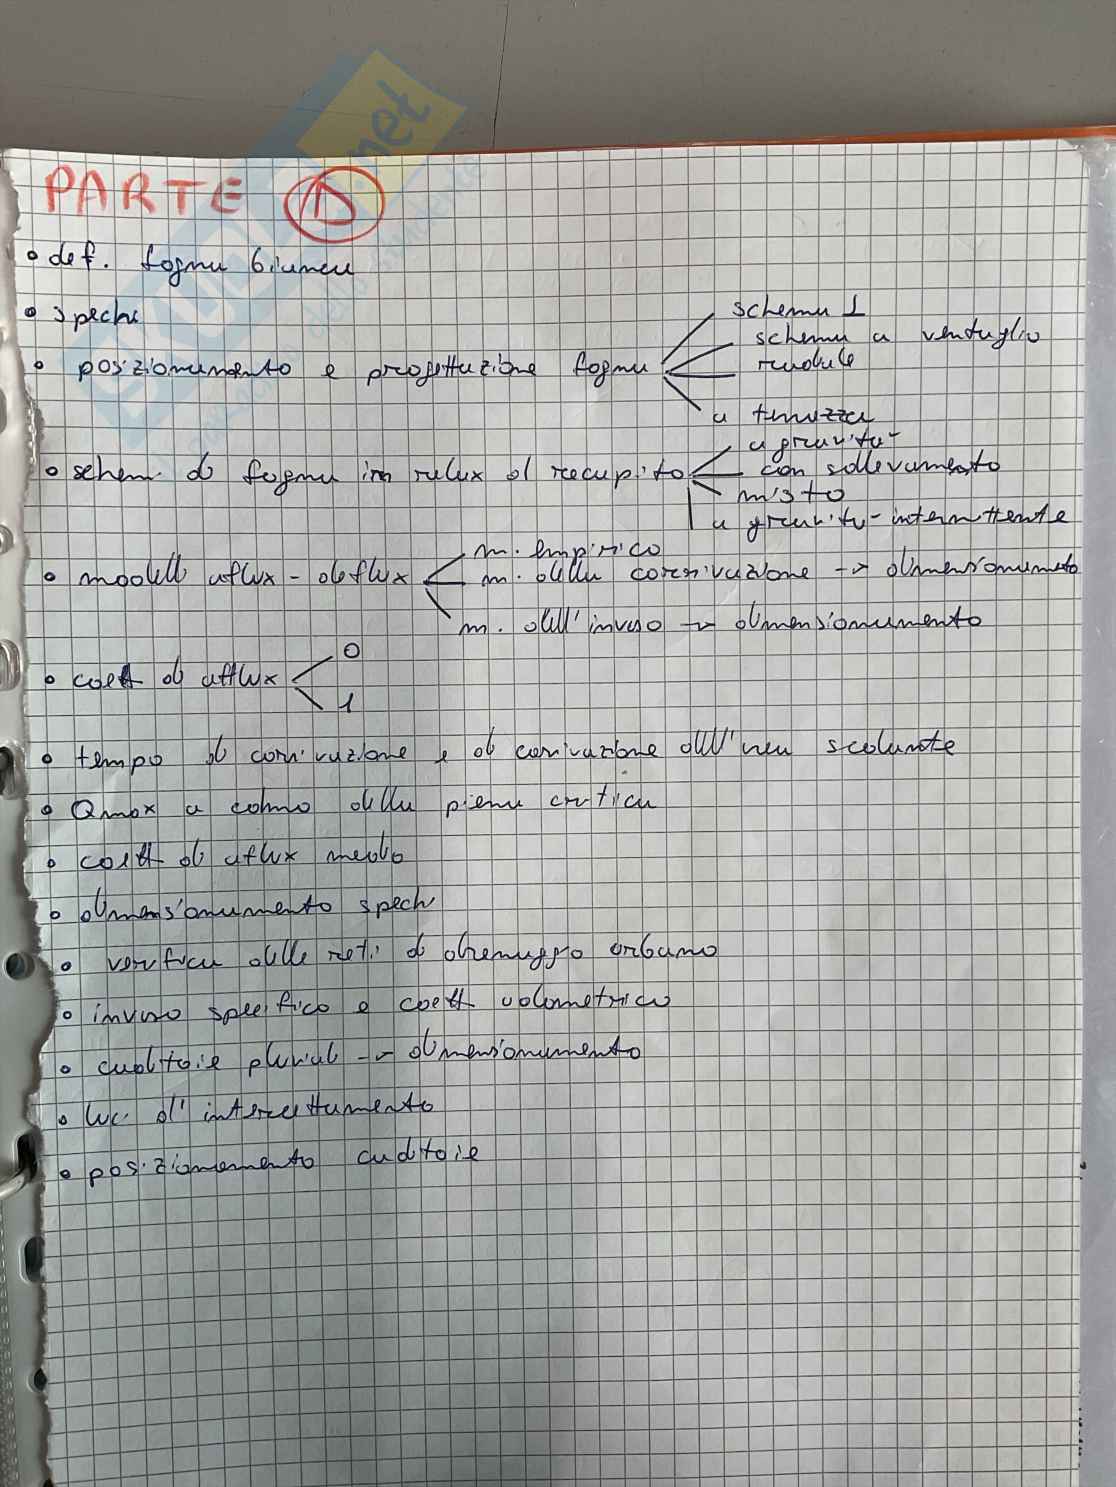 PARTE A
• def. fogna bianca
• spechi
• posizionamento e progettazione fogna
schema ⊥
schema a ventaglio
radiale
a terrazza
• schemi di fogna in relax al recapito
a gravità
con sollevamento
misto
a gravità-intermittente
• modelli aflux - deflux
m. empirico
m. della corrivazione → dimensionamento
m. dell'invaso → dimensionamento
• coeff di afflux
0
1
• tempo di corrivazione e di corrivazione dell'area scolante
• Qmax a colmo della piena critica
• coeff di aflux medio
• dimensionamento spechi
• verifica delle reti di drenaggio urbano
• invaso specifico e coeff volumetrico
• caditoie pluviali → dimensionamento
• luci d'intercettamento
• posizionamento caditoie
SKUOLA.net